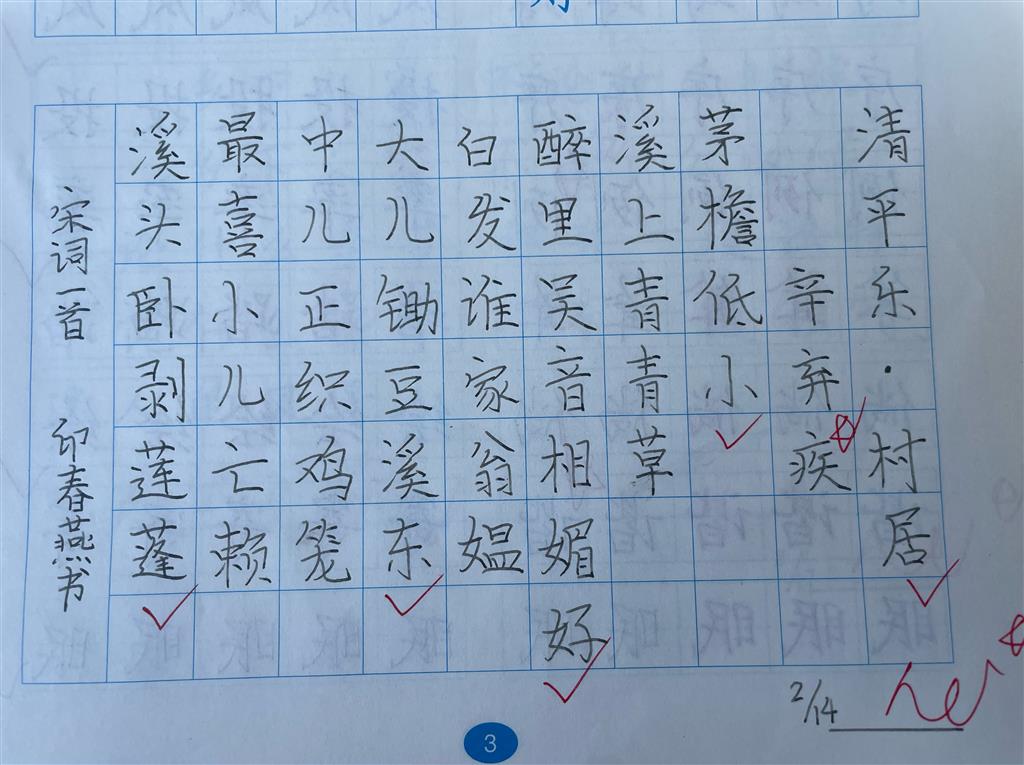 清平乐·村居
辛弃疾
茅檐低小
溪上青青草
醉里吴音相媚好
白发谁家翁媪
大儿锄豆溪东
中儿正织鸡笼
最喜小儿亡赖
溪头卧剥莲蓬
宋词一首 印春燕书
2/14
3